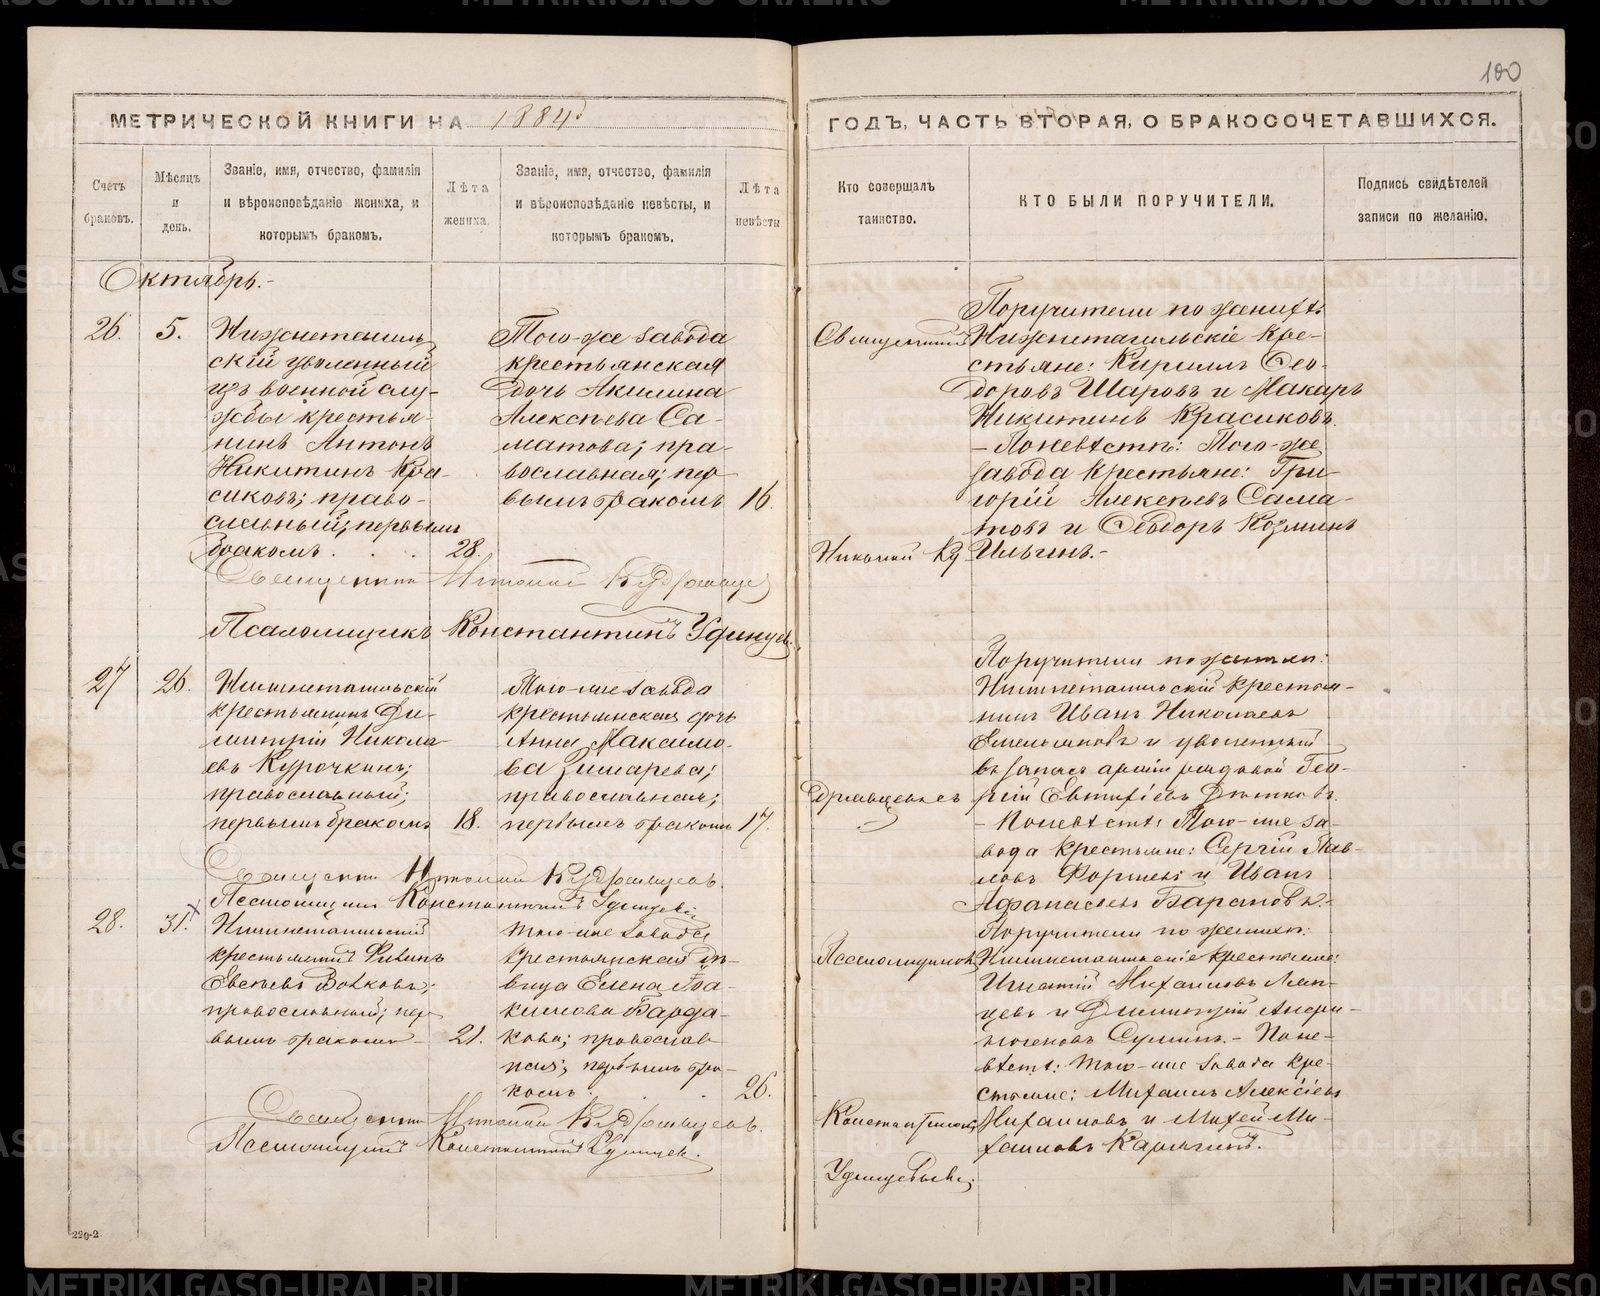 100
МЕТРИЧЕСКОЙ КНИГИ НА 1884
ГОДЪ, ЧАСТЬ ВТОРАЯ, О БРАКОСОЧЕТАВШИХСЯ.
Счетъ
браковъ.
Мѣсяцъ
и
день.
Званіе, имя, отчество, фамилія
и вѣроисповѣданіе жениха, и
которымъ бракомъ.
Лѣта
жениха.
Званіе, имя, отчество, фамилія
и вѣроисповѣданіе невѣсты, и
которымъ бракомъ.
Лѣта
невѣсты
Кто совершалъ
таинство.
КТО БЫЛИ ПОРУЧИТЕЛИ.
Подпись свидѣтелей
записи по желанію.
Октябрь.-
26.
5.
Нижнетагиль
скій уволенный
изъ военной слу-
жбы крестья-
нинъ Антонъ
Никитинъ Кра-
сиковъ; право-
славный; первымъ
бракомъ . . . 28.
Того-же завода
крестьянская
дочь Акилина
Алексѣева Са-
матова; пра-
вославная; пер
вымъ бракомъ 16.
Священникъ
Николай Ку
Поручители по женихѣ
Нижнетагильскіе кре-
стьяне: Кириллъ Ѳео-
доровъ Шаровъ и Макаръ
Никитинъ Красиковъ.
- По невѣстѣ: Того-же
завода крестьяне: Гри-
горій Алексѣевъ Сама-
товъ и Ѳеодоръ Козминъ
Ильинъ.-
Священникъ
Псаломщикъ Константинъ Удинцевъ.
27
26.
Нижнетагильскій
крестьянинъ Ди-
митрій Никола
евъ Курочкинъ;
православный;
первымъ бракомъ 18.
Того-же завода
крестьянская дочь
Анна Максимо-
ва
православная;
первымъ бракомъ 17.
дрявцевъ съ
Поручители по женихѣ:
Нижнетагильскій крестья-
нинъ Иванъ Николаевъ
Емельяновъ и уволенный
въ запасъ арміи рядовой Гео-
ргій Евтихіевъ
- По невѣстѣ: Того-же за-
вода крестьяне: Сергій Пав-
ловъ и Иванъ
Афанасьевъ Барановъ.-
Священникъ
Псаломщикъ Константинъ Удинцевъ
28.
31.
Нижнетагильскій
крестьянинъ
Евсѣевъ Волковъ;
православный; пер
вымъ бракомъ - 21.
Того-же завода
крестьянская дѣ-
вица Елена Іоа-
кимова Барда-
кова; православ
ная; первымъ бра-
комъ . . . 26.
Псаломщикомъ
Константиномъ
Удинцевымъ.
Поручители по женихѣ:
Нижнетагильскіе крестьяне:
Игнатій Михаиловъ Лап-
цевъ и Димитрій Андри-
- По не-
вѣстѣ: Того-же завода кре-
стьяне: Михаилъ Алексіевъ
Михаиловъ и Михей Ми-
хаиловъ
Священникъ
Псаломщикъ Константинъ Удинцевъ.
220-2
METRIKI.GASO-URAL.RU